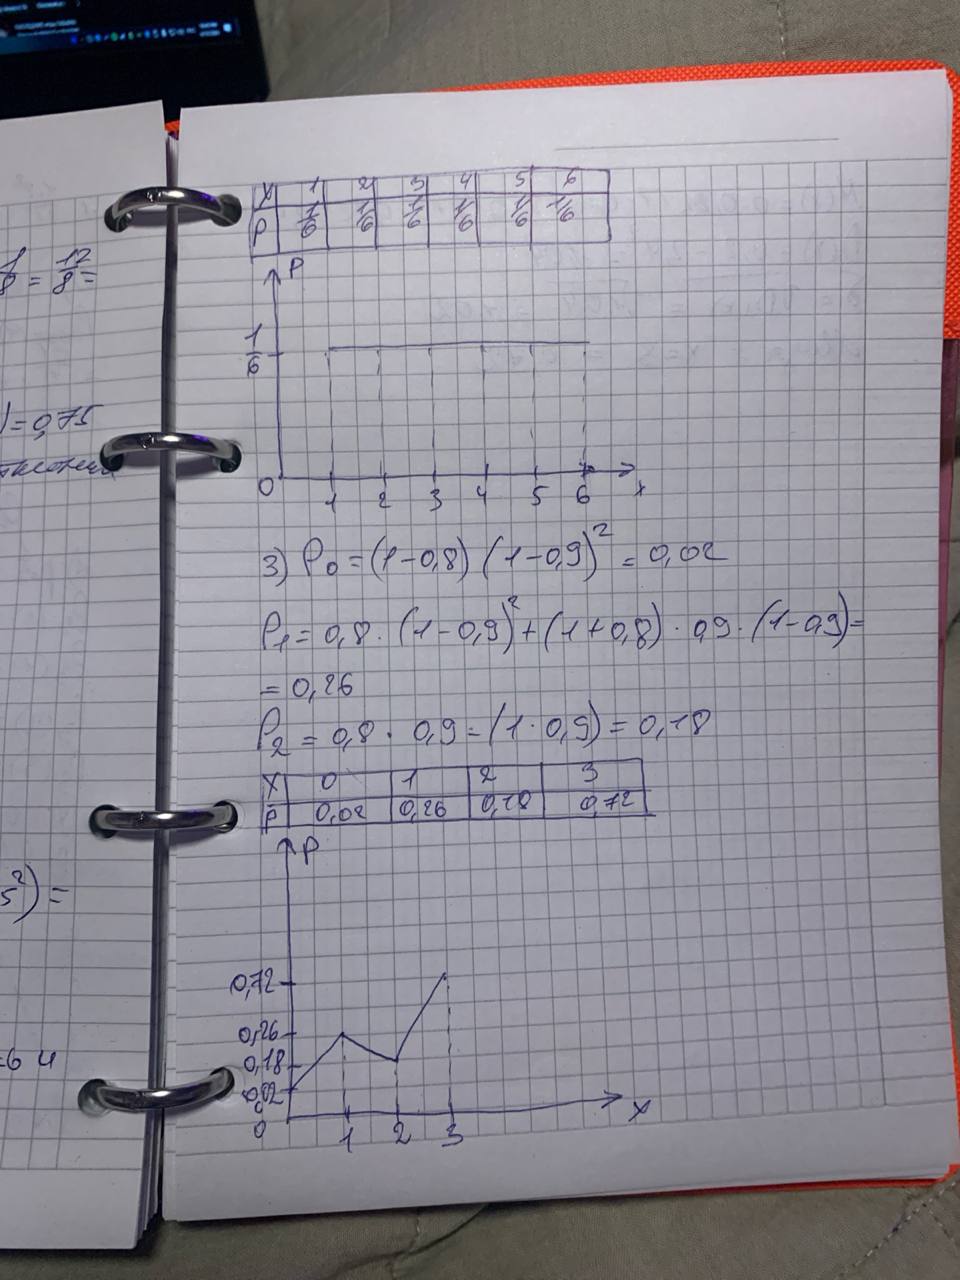 X 1 2 3 4 5 6
P 1/6 1/6 1/6 1/6 1/6 1/6
P
1/6
0 1 2 3 4 5 6 x
3) P₀ = (1-0,8) (1-0,9)² = 0,02
P₁ = 0,8 · (1-0,9)² + (1+0,8) · 0,9 · (1-0,9) =
= 0,26
P₂ = 0,8 · 0,9 - (1 · 0,9) = 0,18
X 0 1 2 3
P 0,02 0,26 0,18 0,72
P
0,72
0,26
0,18
0,02
0 1 2 3 x
1/8 = 12/8 =
) = 0,75
5²) =
=6 ч